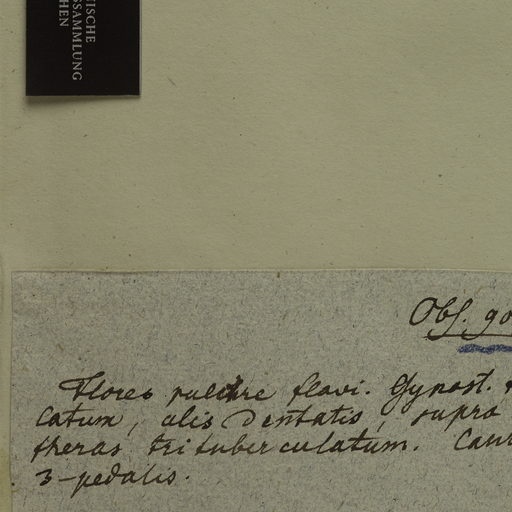 GISCHE
SSAMMLUNG
HEN
Obs. 90
Flores pulchre flavi. Gynost.
catum, alis dentatis, supra
theras trituberculatum. Cau
3-pedalis.